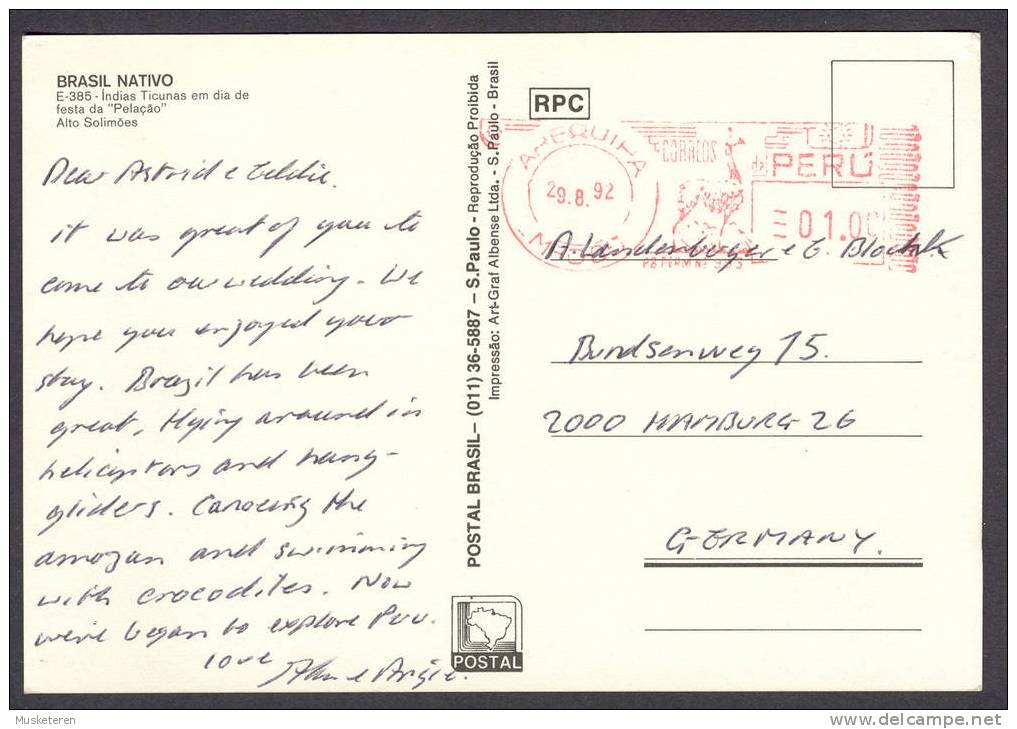 BRASIL NATIVO
E-385 - Índias Ticunas em dia de
festa da "Pelação"
Alto Solimões
Dear Astrid e Eddie.
it was great of you to
come to our wedding. We
hope you enjoyed your
stay. Brazil has been
great, flying around in
helicoptors and hang-
gliders. Canoeing the
amozan and swimming
with crocodiles. Now
we've began to explore Peru.
love
e Angie.
POSTAL BRASIL – (011) 36-5887 – S.Paulo - Reprodução Proibida
Impressão: Art-Graf Albense Ltda. - S.Paulo - Brasil
POSTAL
RPC
AREQUIPA
29.8.92
CORREOS
del PERÚ
01.00
A. Landenberger e G.
Bundsenweg 15.
2000 HAMBURG 26
GERMANY.
Musketeren
www.delcampe.net